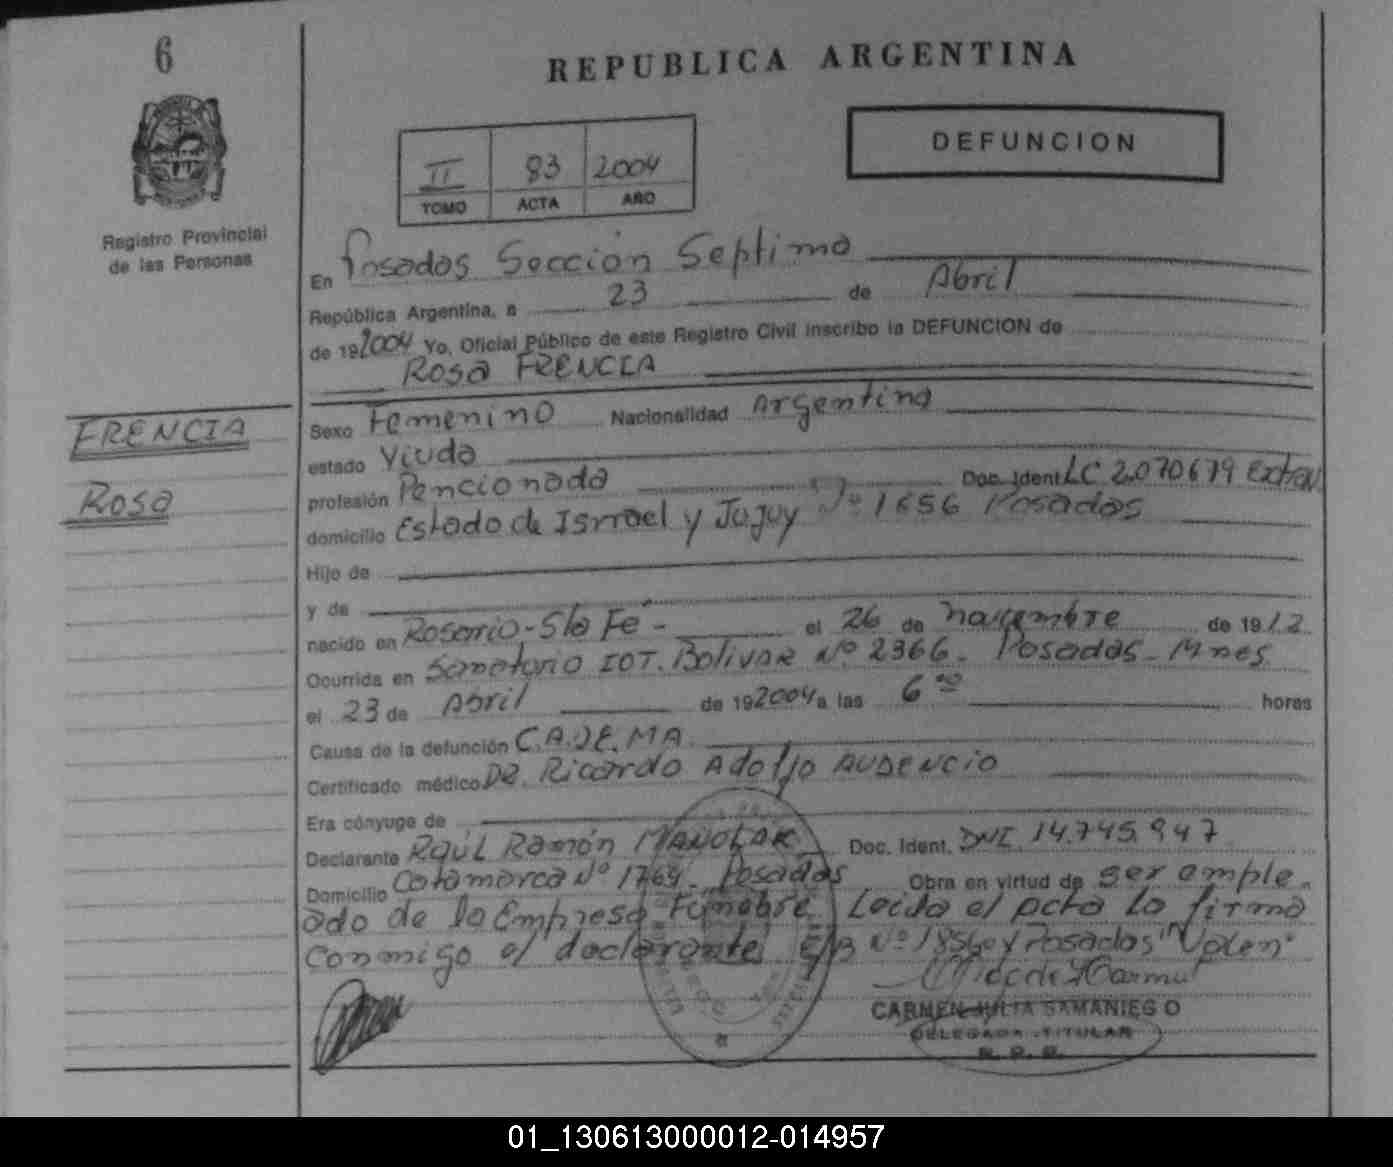 6
REPUBLICA ARGENTINA
DEFUNCION
II 83 2004
TOMO ACTA AÑO
Registro Provincial
de las Personas
En Posadas Sección Septima
República Argentina, a 23 de Abril
de 192004 Yo, Oficial Público de este Registro Civil inscribo la DEFUNCION de
Rosa FRENCIA
FRENCIA
Rosa
Sexo Femenino Nacionalidad Argentina
estado Viuda
profesión Pencionada Doc. Ident LC 2.070.679 Extrav.
domicilio Estado de Isrrael y Jujuy Nº 1656 Posadas
Hijo de
y de
nacido en Rosario-Sta Fé- el 26 de noviembre de 1912
Ocurrida en Sanatorio IOT. Bolivar Nº 2366. Posadas-Mnes
el 23 de Abril de 192004 a las 6 00 horas
Causa de la defunción C.A.DE.MA.
Certificado médico DR. Ricardo Adolfo AUDENCIO
Era cónyuge de
Declarante Raúl Ramón Doc. Ident. DNI. 14.745.947
Domicilio Catamarca Nº 1764. Posadas Obra en virtud de ser emple-
ado de la Empresa Funebre Leida el acta la firma
conmigo el declarante E/B Nº 1856 y Posadas "Valen"
CARMEN JULIA SAMANIEGO
DELEGADA TITULAR
R. P. P.
01_130613000012-014957